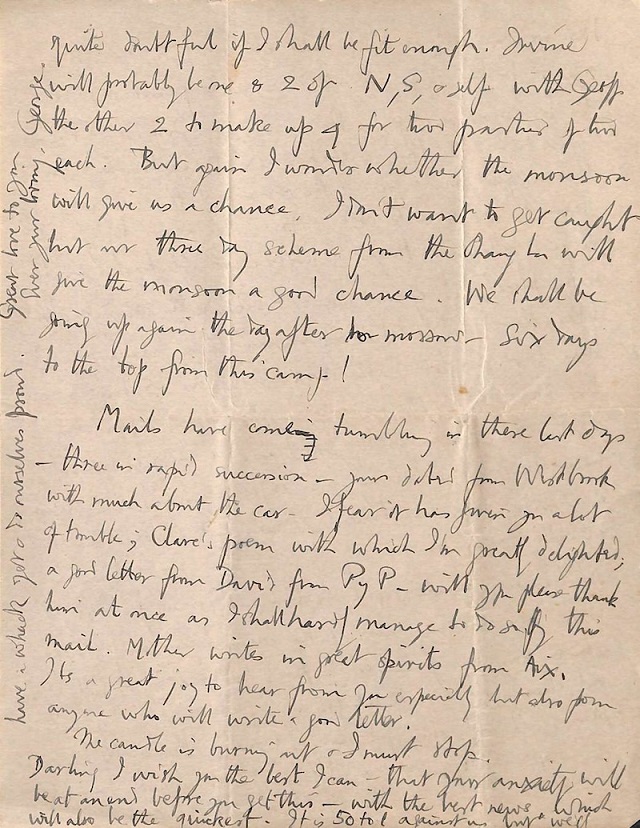 quite doubtful if I shall be fit enough. Irvine
will probably be one & 2 of N, S, & self with Geoff
the other 2 to make up 4 for two parties of two
each. But again I wonder whether the monsoon
will give us a chance. I don't want to get caught
but our three day scheme from the Chang La will
give the monsoon a good chance. We shall be
going up again the day after to morrow - Six days
to the top from this camp!
Mails have come tumbling in these last days
- three in rapid succession - yours dated from Westbrook
with much about the car - I fear it has given you a lot
of trouble; Clare's poem with which I'm greatly delighted;
a good letter from David from P y P - will you please thank
him at once as I shall hardly manage to do so by this
mail. Mother writes in great spirits from Aix.
Its a great joy to hear from you especially but also from
anyone who will write a good letter.
The candle is burning out & I must stop.
Darling I wish you the best I can - that your anxiety will
be at an end before you get this - with the best news which
will also be the quickest. It is 50 to 1 against us but we'll
have a whack yet & do ourselves proud. Great love to you
Ever your loving, George.